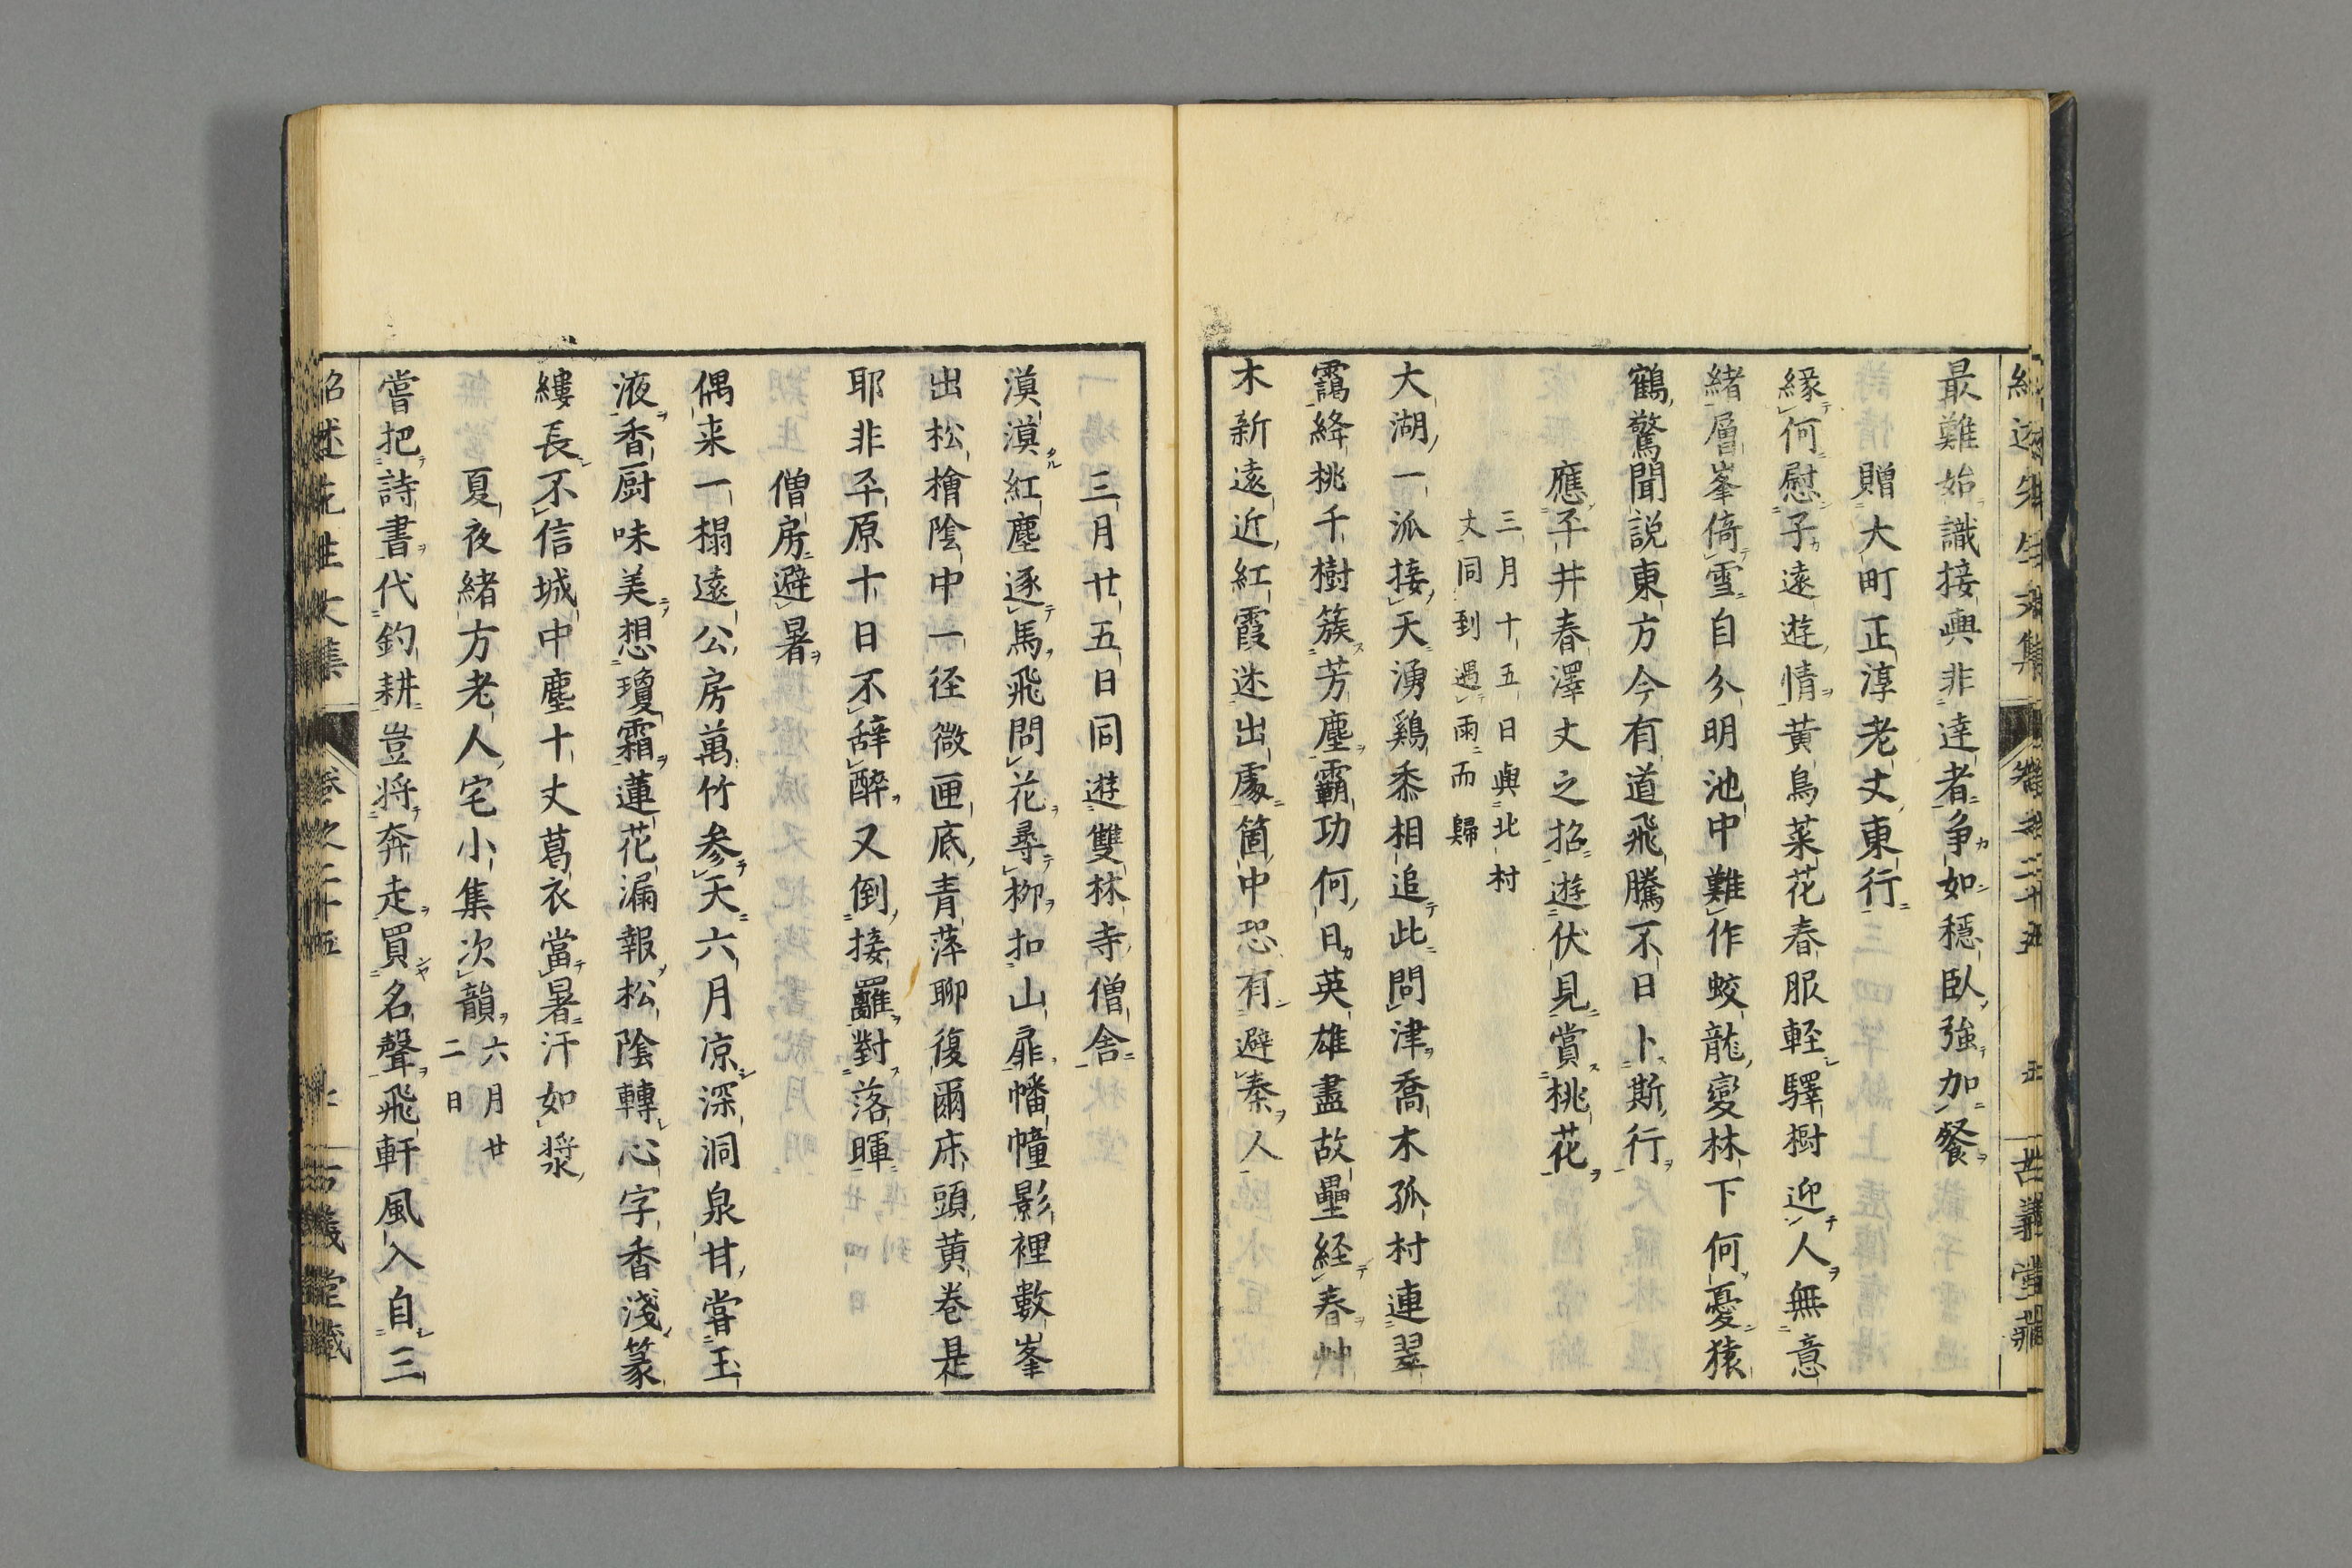 最難始識接輿非達者争如穩臥強加餐
贈大町正淳老丈東行
縁何慰子遠遊情黄鳥菜花春服軽驛樹迎人無意
緒層峯倚雪自分明池中難作蛟龍變林下何憂猿
鶴驚聞説東方今有道飛騰不日卜斯行
應平井春澤丈之招遊伏見賞桃花
三月十五日與北村
丈同到遇雨而歸
大湖一派接天湧鷄黍相追此問津喬木孤村連翠
靄絳桃千樹簇芳塵霸功何日英雄盡故壘経春艸
木新遠近紅霞迷出處箇中恐有避秦人
三月廿五日同遊雙林寺僧舎
漠漠紅塵逐馬飛問花尋柳扣山扉幡幢影裡數峯
出松檜陰中一径微匣底青萍聊復爾床頭黄巻是
耶非平原十日不辞醉又倒接䍦對落暉
僧房避暑
偶来一榻遠公房萬竹参天六月凉深洞泉甘嘗玉
液香厨味美想瓊霜蓮花漏報松陰轉心字香淺篆
縷長不信城中塵十丈葛衣當暑汗如漿
夏夜緒方老人宅小集次韻
六月廿
二日
嘗把詩書代釣耕豈将奔走買名聲飛軒風入自三
紹述先生文集 卷之二十五 古義堂藏